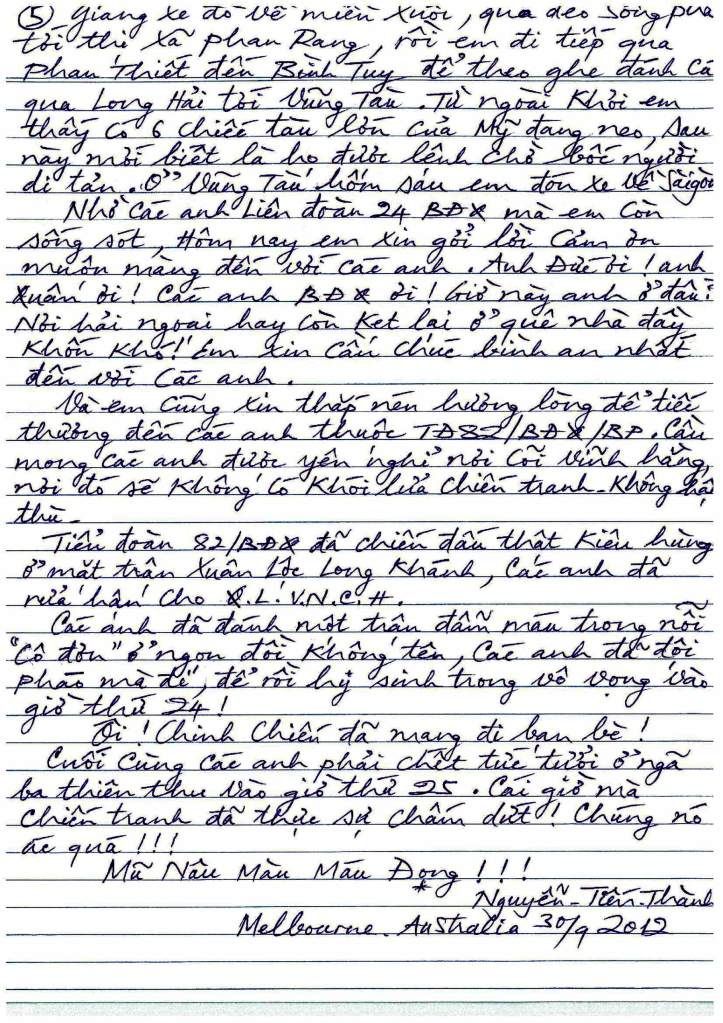 ⑤ Giang xe đò về miền xuôi, qua đèo Sông pha
tới thị Xã Phan Rang, rồi em đi tiếp qua
Phan Thiết đến Bình Tuy để theo ghe đánh Cá
qua Long Hải tới Vũng Tàu. Từ ngoài Khơi em
thấy Có 6 chiếc tàu lớn Của Mỹ đang neo, sau
này mới biết là họ được lệnh chờ bốc người
di tản. Ở Vũng Tàu hôm sáu em đón xe về Sàigòn
Nhờ Các anh Liên đoàn 24 BĐQ mà em Còn
sống sót, Hôm nay em xin gởi lời Cảm ơn
muôn màng đến với các anh. Anh Đức ơi! anh
Xuân ơi! Các anh BĐQ ơi! Giờ này anh ở đâu?
Nơi hải ngoại hay Còn Kẹt lại ở quê nhà đầy
Khốn Khổ! Em xin Cầu chúc bình an nhất
đến với Các anh.
Và em Cũng xin thắp nén hương lòng để tiếc
thương đến các anh thuộc TĐ82/BĐQ/BP. Cầu
mong Các anh được yên nghỉ nơi Cõi vĩnh hằng,
nơi đó sẽ Không Có Khói lửa Chiến tranh - Không hận
thù -
Tiểu đoàn 82/BĐQ đã chiến đấu thật Kiêu hùng
ở mặt trận Xuân Lộc Long Khánh, Các anh đã
rửa hận cho Q.L.V.N.C.H.
Các anh đã đánh một trận đẫm máu trong nỗi
"Cô đơn" ở ngọn đồi Không tên, Các anh đã đội
pháo mà đi, để rồi hy sinh trong vô vọng vào
giờ thứ 24!
Ôi! Chinh Chiến đã mang đi bạn bè!
Cuối Cùng các anh phải chết tức tưởi ở ngã
ba thiên thu vào giờ thứ 25. Cái giờ mà
Chiến tranh đã thực sự chấm dứt! Chúng nó
ác quá!!!
Mũ Nâu Màu Máu Đọng!!!
*
Nguyễn-Tiến-Thành
Melbourne. Australia 30/9 2012